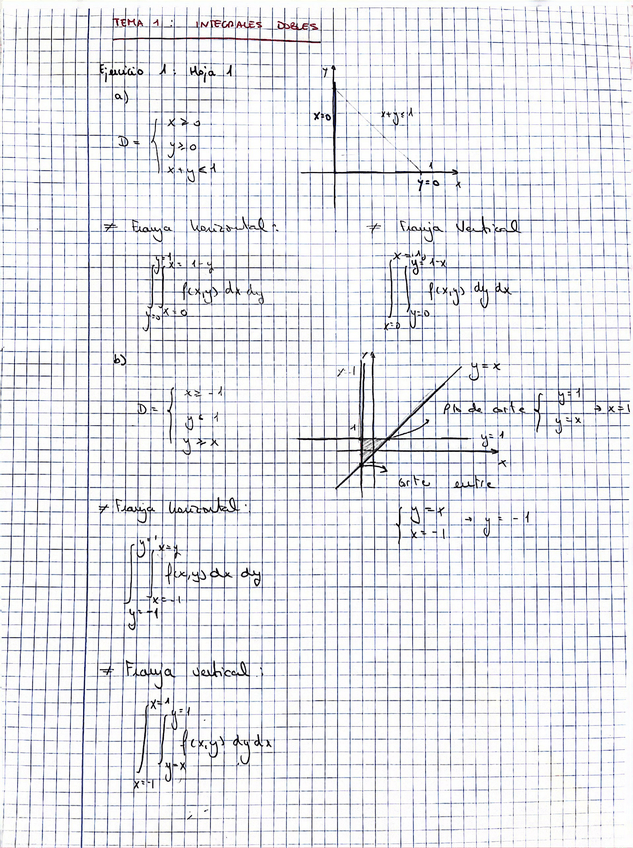 TEMA 1 : INTEGRALES DOBLES
Ejercicio 1 : Hoja 1
a)
D = { x ≥ 0
y ≥ 0
x + y ≤ 1
y
x=0
x+y≤1
1
y=0
x
≠ Franja horizontal :
∫_{y=0}^{y=1} ∫_{x=0}^{x=1-y} f(x,y) dx dy
≠ Franja vertical
∫_{x=0}^{x=1} ∫_{y=0}^{y=1-x} f(x,y) dy dx
b)
D = { x ≥ -1
y ≤ 1
y ≥ x
y
y=x
Pto de corte { y=1
y=x → x=1
1
y=1
x
corte entre
{ y=x
x=-1 → y=-1
≠ Franja horizontal :
∫_{y=-1}^{y=1} ∫_{x=-1}^{x=y} f(x,y) dx dy
≠ Franja vertical :
∫_{x=-1}^{x=1} ∫_{y=x}^{y=1} f(x,y) dy dx